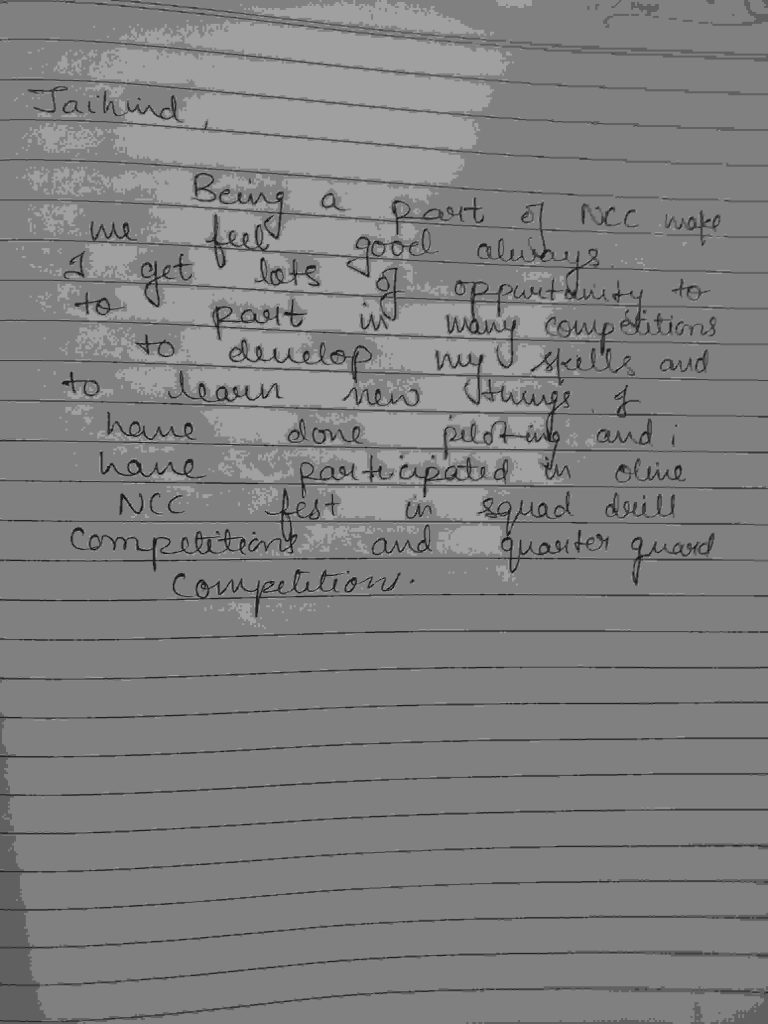 Jaihind,
Being a part of NCC make
me feel good always.
I get lots of oppurtunity to
to part in many competitions
to develop my skills and
to learn new things. I
have done piloting and i
have participated in oline
NCC fest in squad drill
Competitions and quarter guard
Competition.